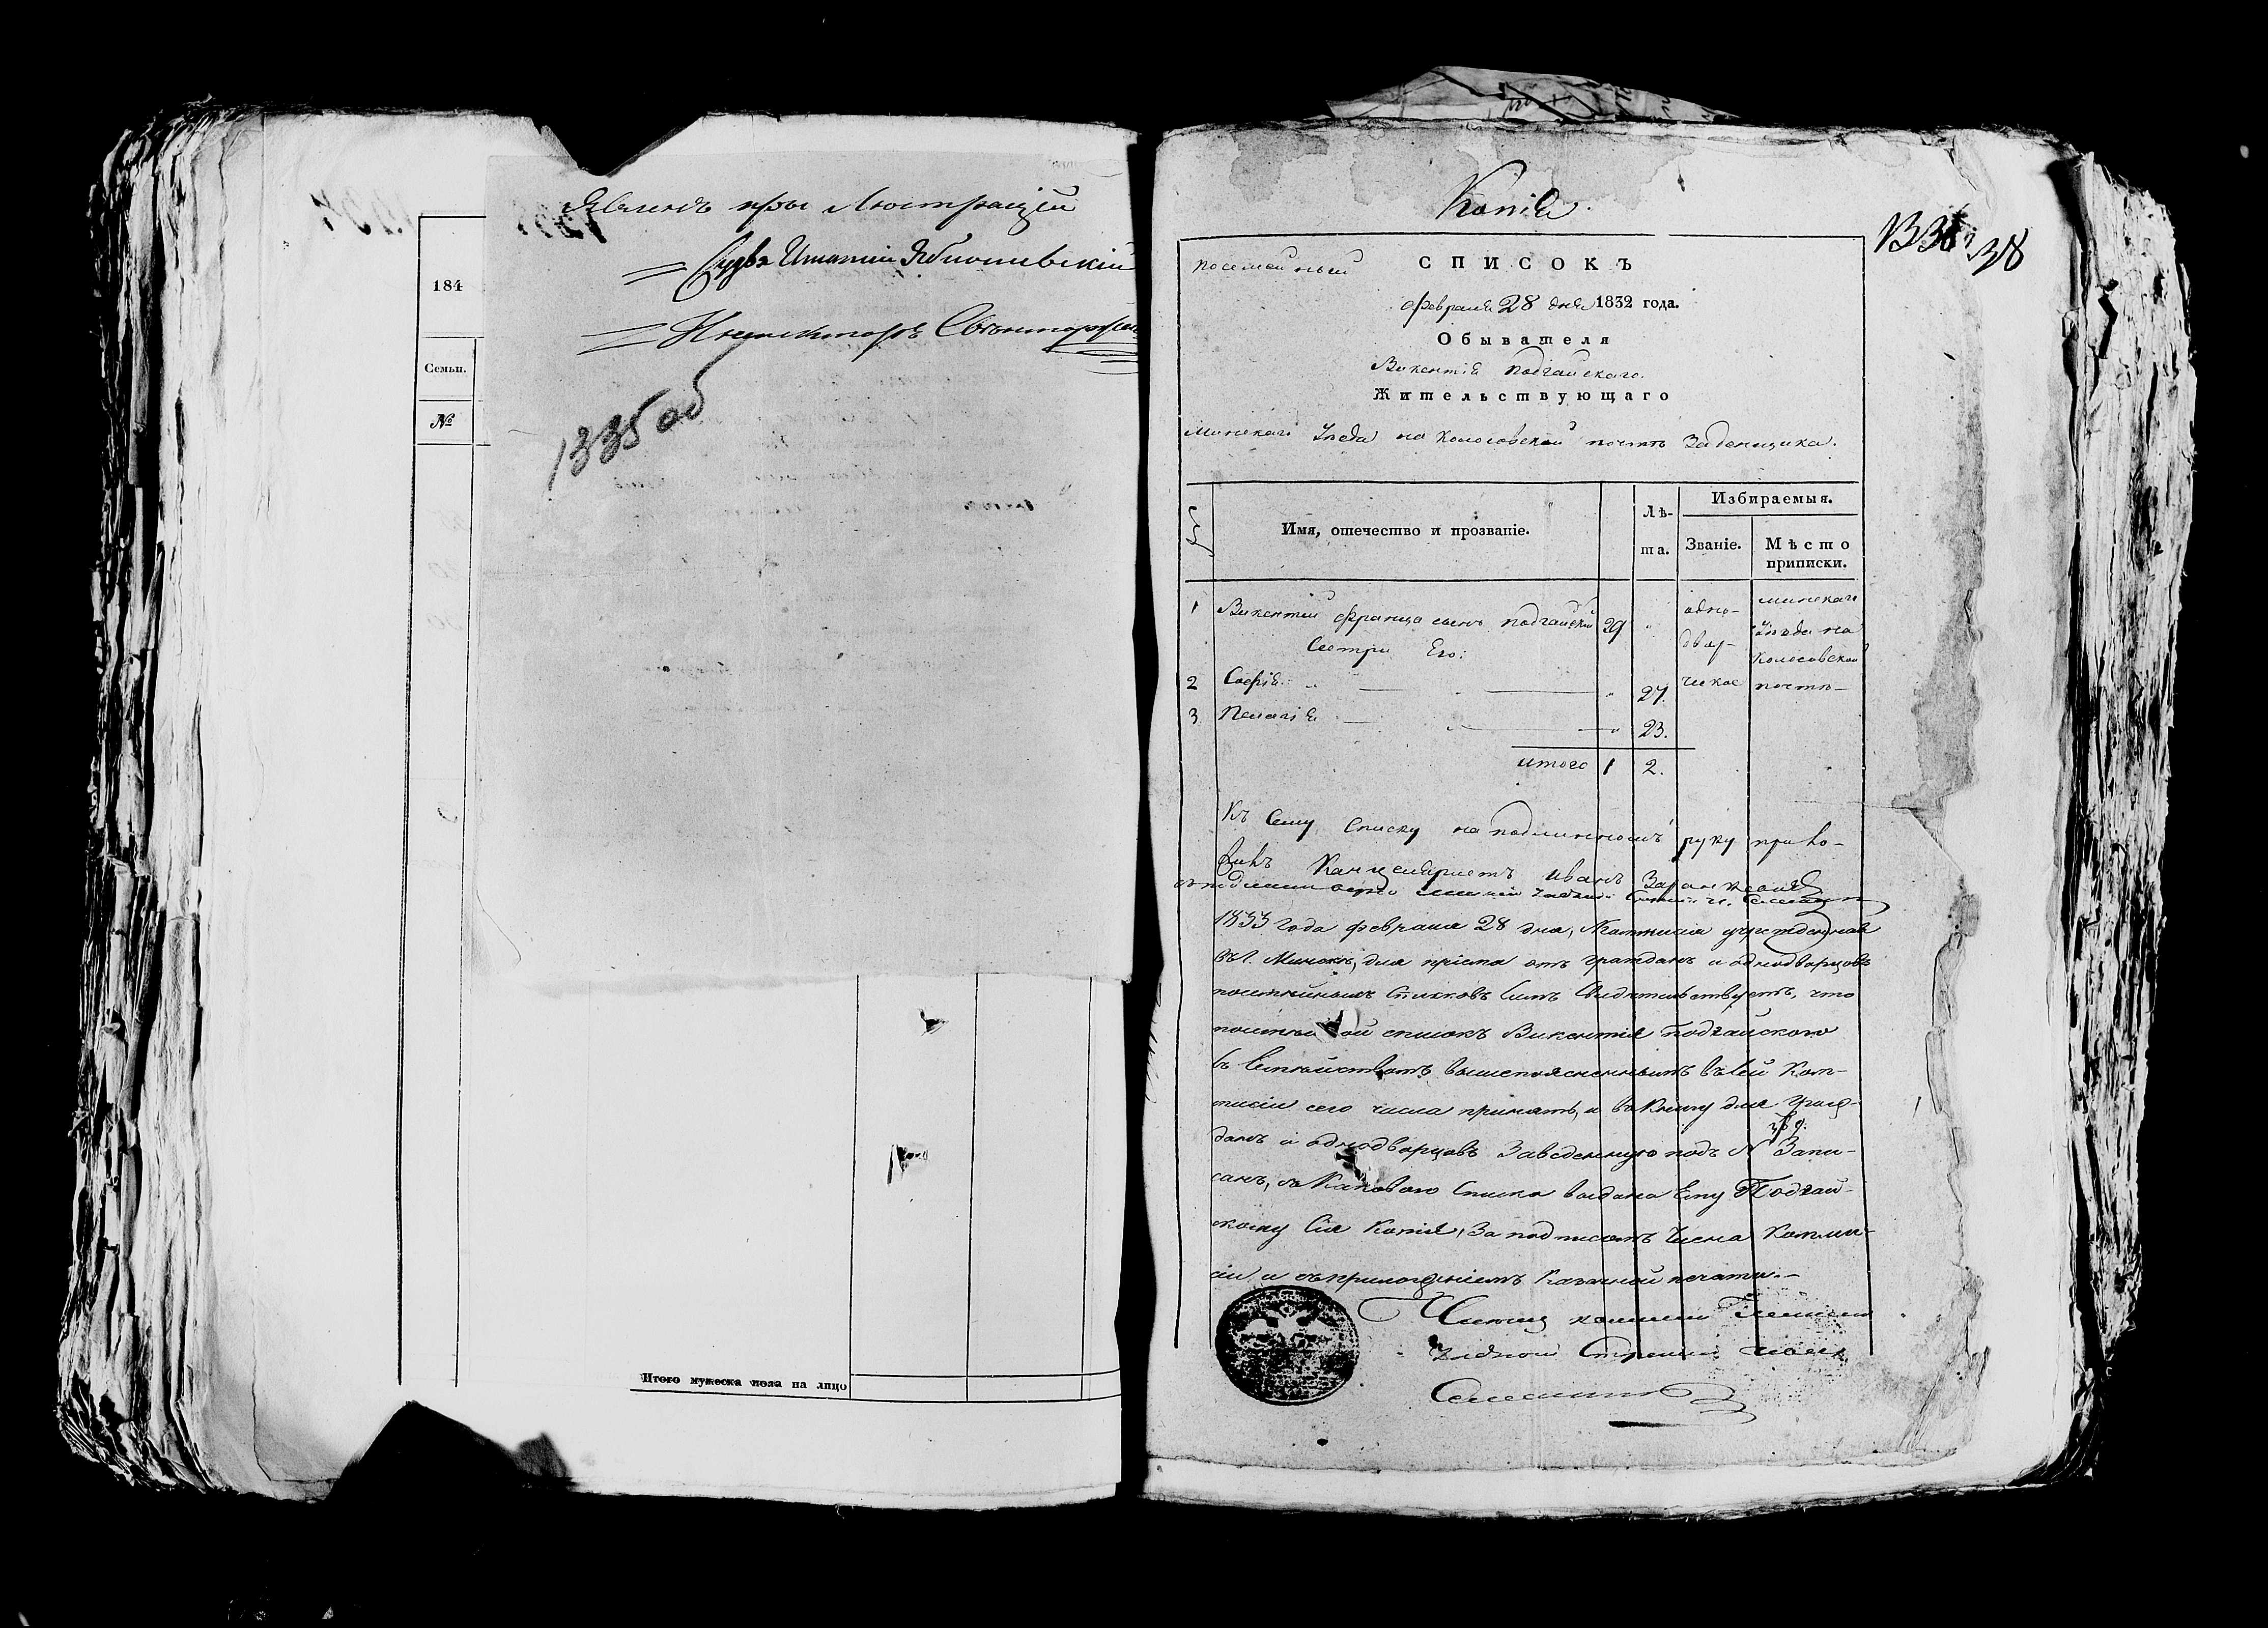 Явленъ при Люстрацiи
Судья Игнатiй Яблоневскiй
Инспекторъ
1335об
184
Семьи.
№
Итого мужеска пола на лицо
Копiя.
1336
38
посемейный СПИСОКЪ
февраля 28 дня 1832 года.
Обывателя
Викентiя Подгайскаго.
Жительствующаго
Минскаго Уезда на Колосовской почте Заденщика.
Имя, отечество и прозванiе.
Лѣ-
та.
Избираемыя.
Званiе.
Мѣсто
приписки.
1 Викентiй Франца сынъ Подгайскiй 29
одно-
двор-
ческое
Минскаго
Уезда на
Колосовской
почтѣ
Сестры Его:
2 Софiя 27.
3 Пелагiя 23.
итого 1 2.
Къ Сему Списку на подлинномъ руку прило-
жилъ Канцеляристъ Иванъ
1833 года февраля 28 дня, Коммисiя учрежденная
въ г. Минскѣ, для прiема отъ гражданъ и однодворцовъ
посемейныхъ Списковъ Симъ Свидетельствуетъ, что
посемейной списокъ Викентiя Подгайского
въ Семействомъ вышепоясненнымъ въ сей Ком-
мисiи сего числа принятъ, и въ Книгу для Граж-
данъ и однодворцовъ Заведенную подъ № 369. Запи-
санъ, съ Каковаго Списка выдана Ему Подгай-
скому Сiя Копiя, За подписомъ Члена Комми-
сiи и съ приложенiемъ Казенной печати.
Членъ коммисiи